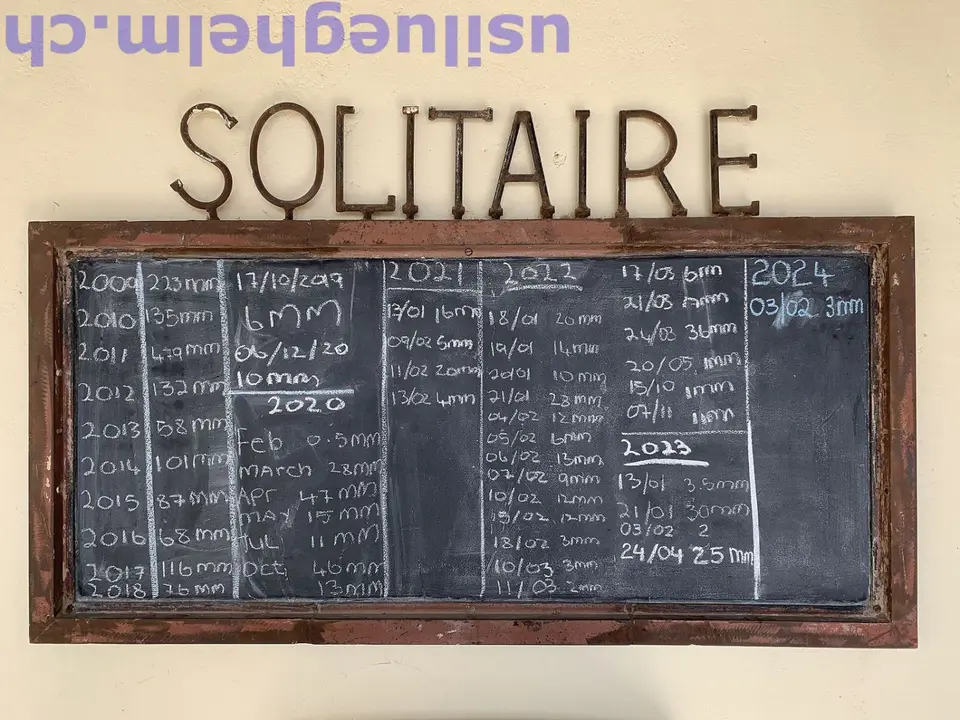 usilueghelm.ch
SOLITAIRE
2009 223mm
2010 135mm
2011 479mm
2012 132mm
2013 58mm
2014 101mm
2015 87mm
2016 68mm
2017 116mm
2018 76mm
17/10/2019
6mm
06/12/20
10mm
2020
Feb 0.5mm
MARCH 28mm
APR 47mm
MAY 15mm
JUL 11mm
Oct 46mm
13mm
2021
13/01 16mm
09/02 5mm
11/02 20mm
13/02 4mm
2022
18/01 26mm
19/01 14mm
20/01 10mm
21/01 23mm
04/02 12mm
05/02 6mm
06/02 13mm
07/02 9mm
10/02 12mm
15/02 12mm
18/02 3mm
10/03 3mm
11/03 2mm
17/03 6mm
21/03
24/03 36mm
20/05 1mm
15/10 1mm
07/11 11mm
2023
13/01 3.5mm
21/01 30mm
03/02 2
24/04 25mm
2024
03/02 3mm